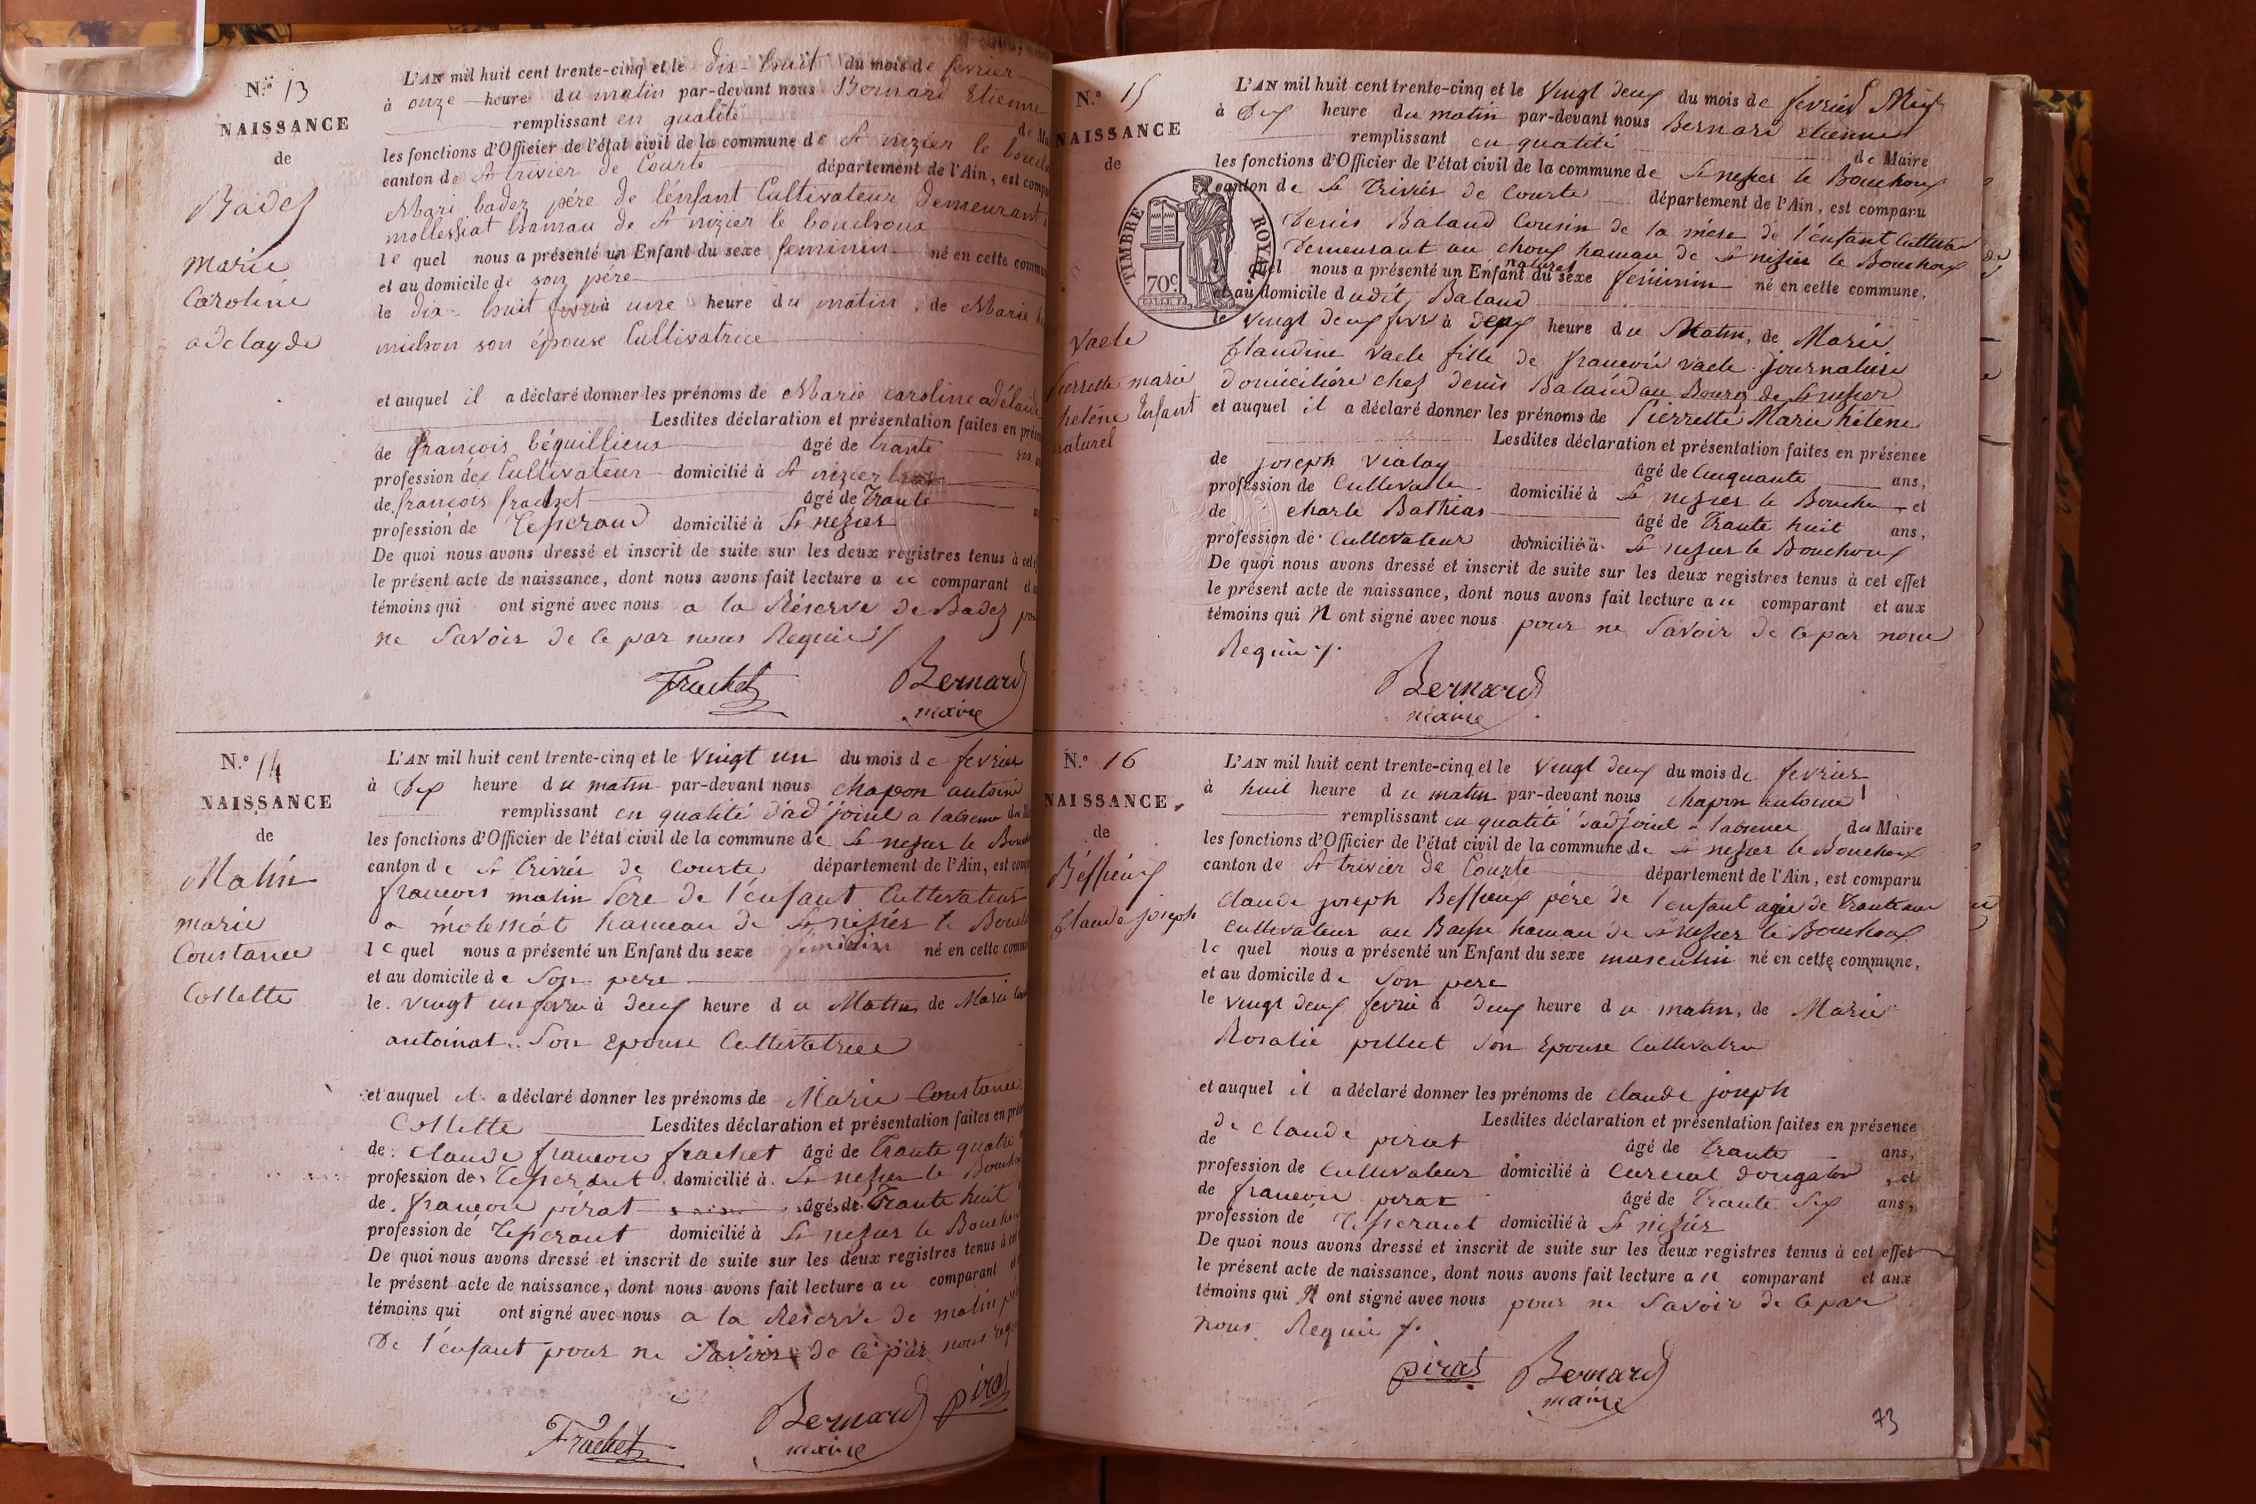 N.º 13
NAISSANCE
de
Badez
Marie
Caroline
adelayde
L'AN mil huit cent trente-cinq et le dix-huit du mois de fevrier
à onze heure du matin par-devant nous Bernard Etienne
remplissant en qualité de Ma
les fonctions d'Officier de l'état civil de la commune de St nizier le bouch
canton de St trivier de Courte département de l'Ain, est compa
Mari badez pére de l'énfant Cultivateur Demeurant
mollessiat hamau de St nizier le bouchoux
le quel nous a présenté un Enfant du sexe feminin né en cette commu
et au domicile de son pére
le dix-huit fevr à unze heure du matin, de Marie
michon son épouse Cultivatrice
et auquel il a déclaré donner les prénoms de Marie caroline adélaide
Lesdites déclaration et présentation faites en prés
de françois béquillieux âgé de trante ans
profession de Cultivateur domicilié à St nizier
de françois frachet âgé de Trante
profession de Tesserand domicilié à St nezier
De quoi nous avons dressé et inscrit de suite sur les deux registres tenus à cet
le présent acte de naissance, dont nous avons fait lecture au comparant et
témoins qui ont signé avec nous a la Réserve de Badez pou
ne Savoir de ce par nous Requie
Frachet Bernard
maire
N.º 14
NAISSANCE
de
Matin
marie
Constance
Collette
L'AN mil huit cent trente-cinq et le vingt un du mois de fevrier
à Dix heure du matin par-devant nous chapon antoine
remplissant en qualité d'ad'joint a l'absence du
les fonctions d'Officier de l'état civil de la commune de St nezier le Bou
canton de St Trivier de Courte département de l'Ain, est comp
francois matin Pere de l'enfant Cultivateur
a molessiat hameau de St nizier le Bouch
le quel nous a présenté un Enfant du sexe féminin né en cette comm
et au domicile de Son pere
le vingt un fevrie à deux heure du Matin de Marie
antoinat Son Epouse Cultivatrice
et auquel il a déclaré donner les prénoms de Marie Constance
Collette Lesdites déclaration et présentation faites en pré
de claude francois frachet âgé de Trante quatre
profession de Tesserant domicilié à St nezier le Bouch
de francois pirat âgé de Trante huit
profession de Tesserant domicilié à St nezier le Bouch
De quoi nous avons dressé et inscrit de suite sur les deux registres tenus à cet
le présent acte de naissance, dont nous avons fait lecture au comparant et
témoins qui ont signé avec nous a la Réserve de matin pér
De l'enfant pour ne Savoir de ce par nous req
Frachet Bernard pirat
maire
N.º 15
NAISSANCE
de
TIMBRE ROYAL
70c
Vacle
Pierrette marie
helène Enfant
naturel
L'AN mil huit cent trente-cinq et le Vingt deux du mois de fevrier
à Dix heure du matin par-devant nous Bernard Etienne
remplissant en qualité de Maire
les fonctions d'Officier de l'état civil de la commune de St nezier le Bouchoux
canton de St Trivier de Courte département de l'Ain, est comparu
Denis Baland Cousin de la mère de l'enfant Cultivateur
Demeurant au choux hameau de St nezier le Bouchoux
le quel nous a présenté un Enfant naturel du sexe feminin né en cette commune,
et au domicile dudit Baland
le vingt deux fevr à deux heure du Matin, de Marie
Claudine Vacle fille de francois vacle journalière
domicilière chez denis Baland au Bourg de St nezier
et auquel il a déclaré donner les prénoms de Pierrette Marie hélène
Lesdites déclaration et présentation faites en présence
de joseph vialay âgé de Cinquante ans,
profession de Cultivate domicilié à St nezier le Bouchu et
de charle Bathias âgé de Trante huit ans,
profession de Cultivateur domicilié à St nezier le Bouchoux
De quoi nous avons dressé et inscrit de suite sur les deux registres tenus à cet effet
le présent acte de naissance, dont nous avons fait lecture au comparant et aux
témoins qui N ont signé avec nous pour ne Savoir de ce par nous
Requie
Bernard
maire
N.º 16
NAISSANCE
de
Béssieux
Claude joseph
L'AN mil huit cent trente-cinq et le Vingt deux du mois de fevrier
à huit heure du matin par-devant nous chapon antoine
remplissant en qualité d'ad'joint a l'absence du Maire
les fonctions d'Officier de l'état civil de la commune de St nezier le Bouchoux
canton de St trivier de Courte département de l'Ain, est comparu
Claude joseph Bessieux pére de l'enfant agée de Trante ans
cultivateur au hameau de St nezier le Bouchoux
le quel nous a présenté un Enfant du sexe masculin né en cette commune,
et au domicile de Son pere
le vingt deux fevrié à deux heure du matin, de Marie
Rosalie pillut Son Epouse Cultivatri
et auquel il a déclaré donner les prénoms de claude joseph
Lesdites déclaration et présentation faites en présence
de de claude pirat âgé de Trante ans,
profession de Cultivateur domicilié à Curciat dongalon, et
de francois pirat âgé de Trante Six ans,
profession de Tesserant domicilié à St nezier
De quoi nous avons dressé et inscrit de suite sur les deux registres tenus à cet effet
le présent acte de naissance, dont nous avons fait lecture au comparant et aux
témoins qui N ont signé avec nous pour ne Savoir de ce par
nous Requie
pirat Bernard
maire
73